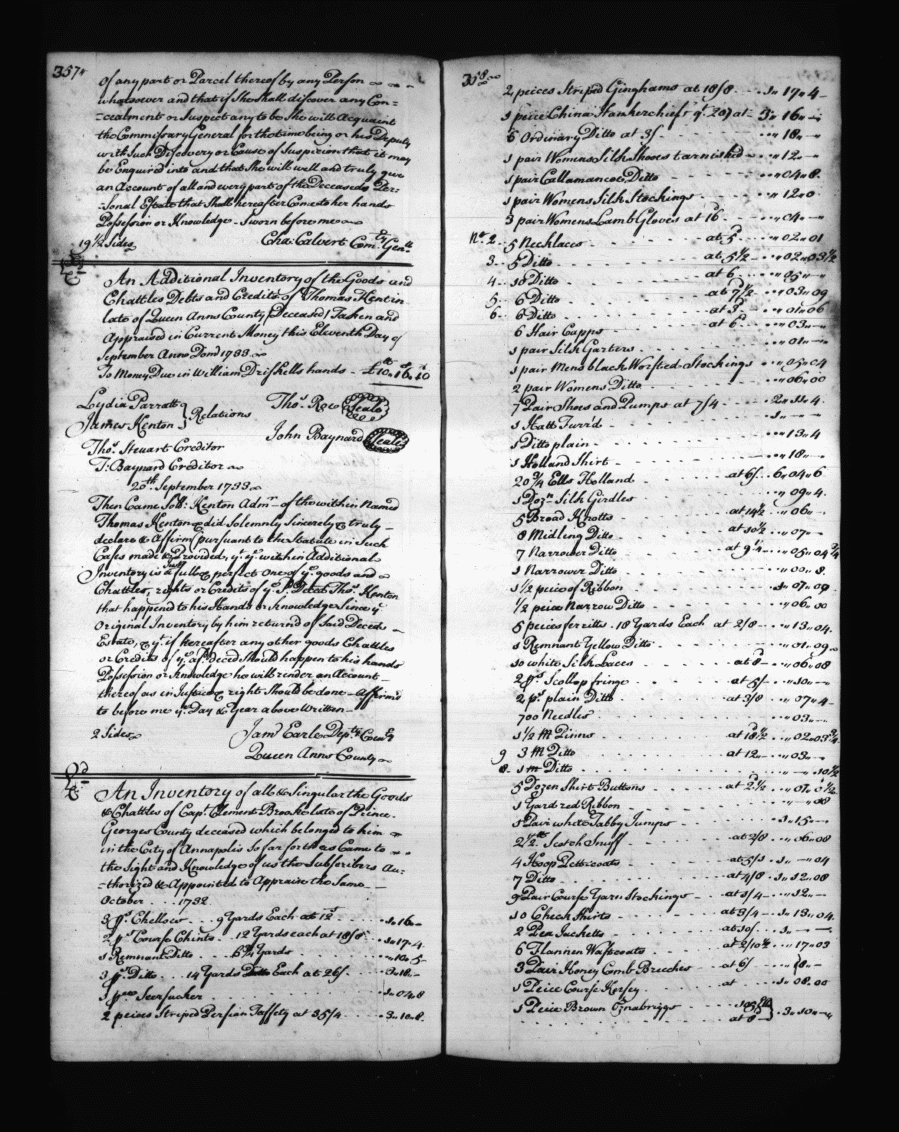 357
of any part or Parcel thereof by any Person
whatsoever and that if She shall discover any Con=
=cealment or Suspect any to be She will Acquaint
the Commissary General for the time being or his Deputy
with Such Discovery or Cause of Suspicion that it may
be Enquired into and that She will well and truly give
an Account of all and every part of the Deceaseds Per=
=sonal Estate that Shall hereafter Come to her hands
Possession or Knowledge - Sworn before me
19 1/2 Sides Cha: Calvert Com:ry Gen:ll
An Additional Inventory of the Goods and
Chattles Debts and Credits of Thomas Kenton
late of Queen Anns County Deceased Taken and
Appraised in Current Money this Eleventh Day of
September Anno Dom 1733
To Money Due in William Driskells hands - £10.16.10
Lydia Parratt } Relations Tho:s Roe Seale
James Kenton
John Baynard Seale
Tho:s Steuart Creditor
T: Baynard Creditor
20th September 1733
Then Came Sol: Kenton Adm:r of the within Named
Thomas Kenton & did Solemnly Sincerely & truly
declare & Affirm pursuant to the Statute in Such
Cases made & Provided, yt ye within Additional
Inventory is a Just full & perfect one of ye goods and
Chattles, rights or Credits of ye Sd Decd Tho:s Kenton
that happend to his Hands or Knowledge Since ye
Original Inventory by him returnd of Said Deceds
Estate, & yt if hereafter any other goods Chattles
or Credits of ye afd Deced Should happen to his hands
Possession or Knowledge he will render an Account
thereof as in Justice & right Should be done - Affirmd
to before me ye Day & Year above Written
2 Sides Jam:s Earle Dep:ty Com:ry
Queen Anns County
An Inventory of all & Singular the Goods
& Chattles of Cap:t Clement Brooke late of Prince
Georges County deceased which belonged to him
in the City of Annapolis So far forth as Came to
the Sight and Knowledge of us the Subscribers Au=
=thorized & Appointed to Appraise the Same
October ... 1732
3 ps Chellocs .. 9 Yards Each at 12s .. 1 " 16 -
2 ps Course Chints .. 12 Yards each at 18/8 .. 1 " 17 - 4
1 Remnant Ditto .. 6 3/4 Yards .. " 10 " 5
3 ps Ditto .. 14 Yards Each at 26/ .. 3 " 18 -
1 ps Seersucker .. 1 " 04 " 8
2 peices Striped Persian Taffety at 35/4 .. 3 " 10 " 8
358
2 peices Striped Ginghams at 18/8 .. 1 " 17 " 4
1 peice China Hankerchiefs qt 20 at - 3 " 16 " -
6 Ordinary Ditto at 3/ .. " 18 " -
1 pair Womens Silk Shoes tarnished .. " 12 " -
1 pair Callamancoe Ditto .. " 04 " 8
1 pair Womens Silk Stockings .. " 12 " 0
3 pair Womens Lamb Gloves at 16 .. " 04 " -
No 2 .. 5 Necklaces .. at 5 .. " 02 " 01
3 .. 5 Ditto .. at 5 1/2 .. " 02 " 03 1/2
4 .. 10 Ditto .. at 6 .. " 05 " -
5 .. 6 Ditto .. at 7 1/2 .. " 03 " 09
6 .. 6 Ditto .. at 3 .. " 01 " 06
6 Hair Capps .. at 6 .. " 03 " -
1 pair Silk Garters .. " 01 " -
1 pair Mens black Worsted Stockings .. " 05 " 04
2 pair Womens Ditto .. " 06 " 00
7 Pair Shoes and Pumps at 7/4 .. 2 " 11 " 4
1 Hatt Furr'd .. 1 " -
1 Ditto plain .. " 13 " 4
1 Holland Shirt .. " 18 " -
20 3/4 Ells Holland .. at 6/ .. 6 " 04 " 6
1 Doz:n Silk Girdles .. " 09 " 4
5 Broad Knotts .. at 14 1/2 .. " 06 " -
8 Midling Ditto .. at 10 1/2 .. " 07 " -
7 Narrower Ditto .. at 9 1/4 .. " 05 " 04 3/4
1 Narrower Ditto .. " 00 " 8
1 1/2 peice of Ribbon .. 1 " 07 " 09
1/2 peice Narrow Ditto .. " 06 " 00
5 peices ferritts . 18 Yards Each at 2/8 .. " 13 " 04
1 Remnant Yellow Ditto .. " 01 " 09
10 white Silk Laces .. at 8 .. " 06 " 08
2 ps Scollop fringe .. at 5/ .. " 10 " -
2 ps plain Ditto .. at 3/8 .. " 07 " 4
700 Needles .. " 03 " -
1 1/2 M Pinns .. at 18 1/2 .. " 02 " 03 3/4
9 3 M Ditto .. at 12 .. " 03 " -
8 .. 1 M Ditto .. " 10 1/2
5 Dozen Shirt Buttons .. at 2 1/2 .. " 01 " 0 1/2
1 Yard red Ribbon .. " 08
1 Pair white Tabby Jumps .. 1 " 15 -
2 1/2 lb Scotch Snuff .. at 2/8 .. " 06 " 08
4 Hoop Petticoats .. at 5/1 .. 1 " - 04
7 Ditto .. at 4/8 .. 1 " 12 " 08
9 Pair Course Yarn Stockings .. at 1/4 .. " 12 " -
10 Check Shirts .. at 3/4 .. 1 " 13 " 04
2 Pea Jacketts .. at 10/ .. 1 " -
6 Flannen Wastcoats .. at 2/10 1/2 .. " 17 " 03
3 Pair Honey Comb Breeches .. at 6/ .. " 18 -
1 Peice Course Kersey .. at .. 1 " 08 " 00
1 Peice Brown Oznabriggs .. at 8 } .. 3 " 10 " -